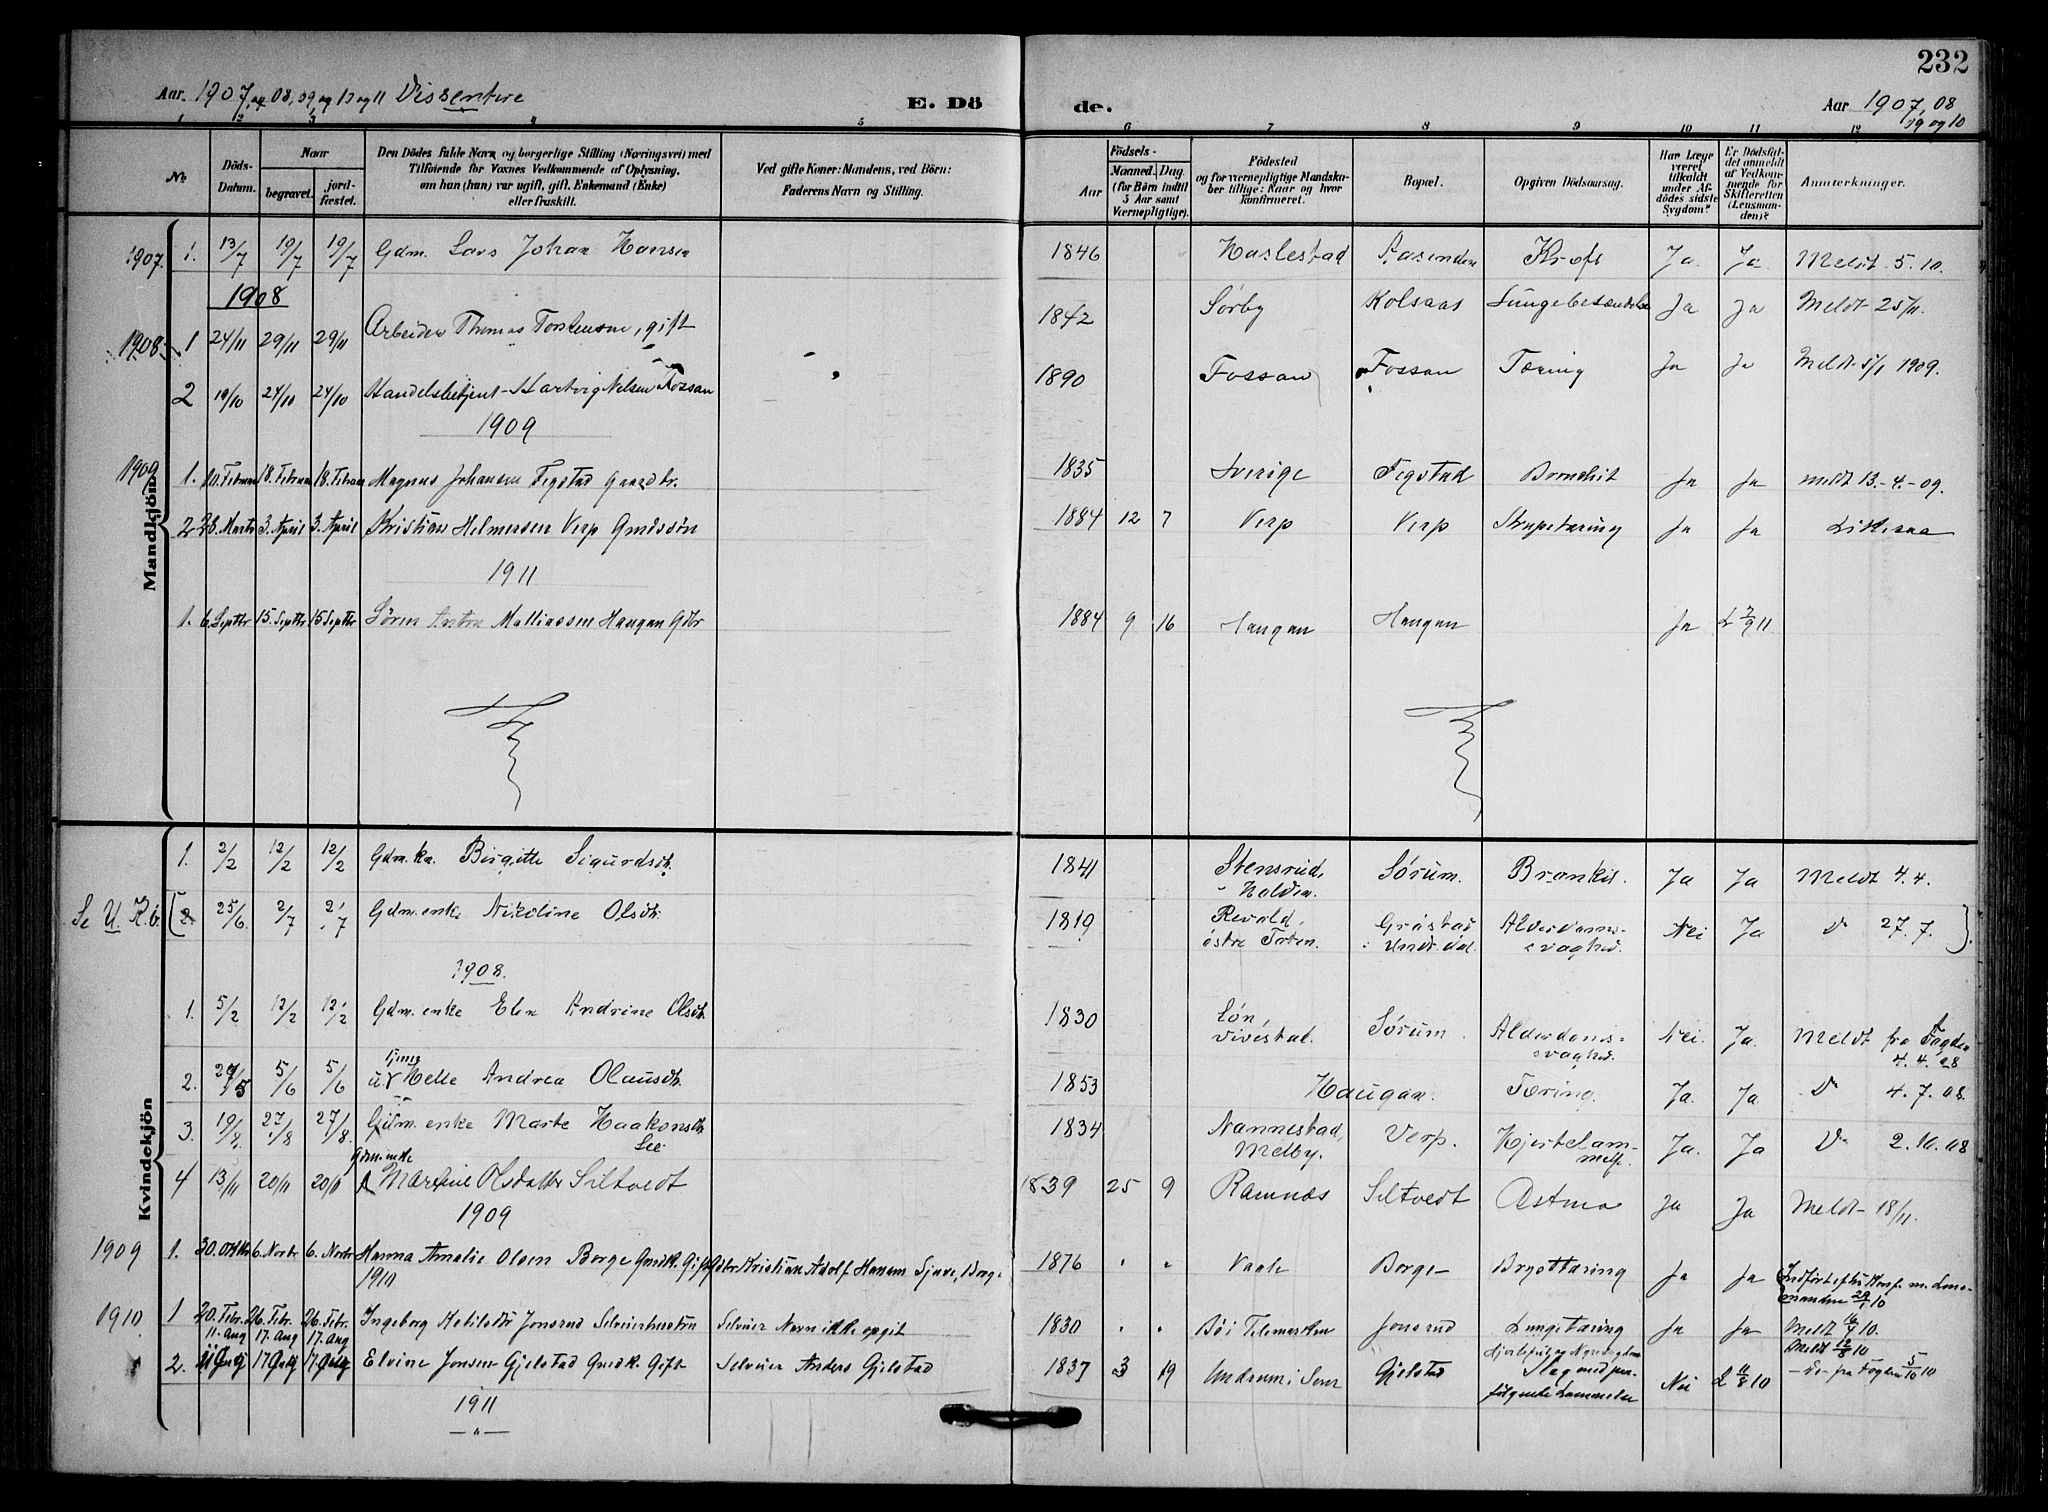 232
Aar. 1907, og 08, 09, og 10 og 11 Dissentere E. Dö de. Aar 1907, 08
09 og 10
1 2 3 4 5 6 7 8 9 10 11 12
No
Döds-Datum.
Naar
begravet.
jord-fæstet.
Den Dödes fulde Navn og borgerlige Stilling (Næringsvei) med
Tilföiende for Voxnes Vedkommende af Oplysning,
om han (hun) var ugift, gift, Enkemand (Enke)
eller fraskilt.
Ved gifte Koner: Mandens, ved Börn:
Faderens Navn og Stilling.
Födsels-
Aar
Maaned. Dag.
(for Börn indtil
5 Aar samt
Værnepligtige).
Födested
og for værnepligtige Mandska-
ber tillige: Naar og hvor
konfirmeret.
Bopæl.
Opgiven Dödsaarsag.
Har Læge
været
tilkaldt
under Af-
dödes sidste
Sygdom?
Er Dödsfal-
det anmeldt
af Vedkom-
mende for
Skifteretten
(Lensman-
den)?
Anmerkninger.
Mandkjön
1907. 1. 13/7 19/7 19/7 Gdm. Lars Johan Hansen 1846 Haslestad Aasenden Kræft Ja Ja Meldt 5.10.
1908
1908 1 24/11 29/11 29/11 Arbeider Thomas Torstensen, gift 1842 Sørby Kolsaas Lungebetændelse Ja Ja Meldt 25/11.
2 19/10 24/10 24/10 Handelsbetjent Hartvig Nilsen Fossan 1890 Fossan Fossan Tæring Ja Ja Meldt 5/1 1909.
1909
1909 1. 10. Februar 18. Februar 18. Februar Magnus Johansen Tegstad Gaardbr. 1835 Sverige Tegstad Bronchit Ja Ja meldt 13.-4.-09.
2 28. Marts 3. April 3. April Kristian Helmersen Verp Gmdssøn 1884 12 7 Verp Verp Strupetæring Ja Ja Likesaa
1911
1. 6. Septbr 15. Septbr 15 Septbr Søren Anton Mathiassen Haugan Gdbr 1884 9 16 Haugan Haugan Ja L 7/9 11
Kvindekjön
1. 2/2 12/2 12/2 Gdm.ka. Birgitte Sigurdsdt. 1841 Stensrud, Holden. Sørum. Bronkit. Ja Ja Meldt 4.4.
Se U. K.b. 2. 25/6 2/7 2/7 Gdm.enke Nikoline Olsdt. 1819 Revold, østre Toten. Gråstad Undr.dal. Alderdoms-svaghed. Nei Ja Do 27.7.
1908.
1. 5/2 12/2 12/2 Gdm.enke Elen Andrine Olsdt. 1830 Løn, Vivestad. Sørum. Alderdoms-svaghed. Nei. Ja. Meldt fra Fogden 4.4.08
2. 29/5 5/6 5/6 ugift Helle Andrea Olausdt. 1853 Haugan. Tæring. Ja. Ja Do 4.7.08.
3. 19/8 27/8 27/8. Gdm.enke Marte Haakonsdt. Lie 1834 Nannestad, Melby. Verp. Hjertelammelse. Ja. Ja Do 2.10.08
4 13/11 20/11 20/11 Gdm.enke Martine Olsdatter Siltvedt 1839 25 9 Ramnæs Siltvedt Astma Ja Ja Meldt 18/11.
1909
1909 1. 30. Oktbr 6. Novbr 6. Novbr Hanna Amalie Olsen Borge Gmdk. Gift Gdbr Kristian Adolf Hansen Borge 1876 " " Vaale Borge Brysttæring Ja Ja Indført efter Konf. m. Lensmanden 29/1 10
1910
1910 1 20. Febr. 26. Febr 26. Febr. Ingeborg Ketilsdtr Jonsrud Selveierhustru Selveier Navn ikke opgit 1830 " " Bø i Telemarken Jonsrud Lungetæring Ja Ja Meldt 16/7 10.
2. 11. Aug 17. Aug 17. Aug Elvine Jensen Gjelstad Gmdk. Gift Selveier Anders Gjelstad 1837 3 19 Undrum i Sem Gjelstad Slag med paafølgende Lammelse Nei L 11/8 10 Meldt 12/8 10 -Do- fra Fogden 5/10 10
1911
- " -